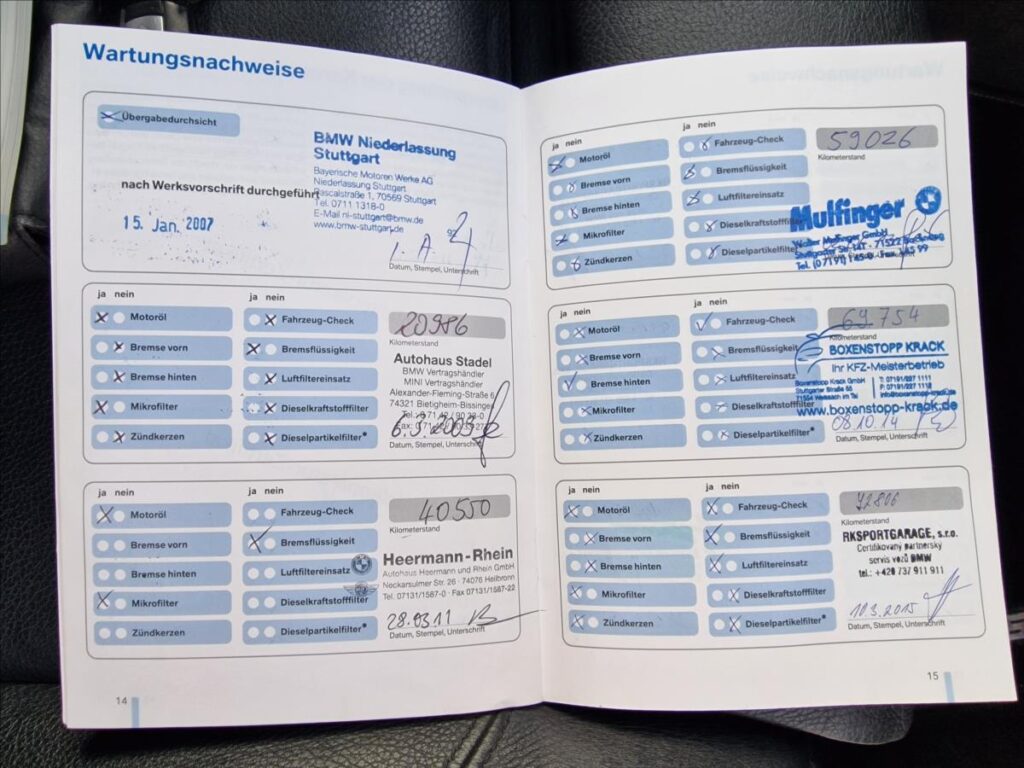 Wartungsnachweise
Übergabedurchsicht
BMW Niederlassung
Stuttgart
Bayerische Motoren Werke AG
Niederlassung Stuttgart
Pascalstraße 1, 70569 Stuttgart
Tel. 0711 1318-0
E-Mail nl-stuttgart@bmw.de
www.bmw-stuttgart.de
nach Werksvorschrift durchgeführt
15. Jan. 2007
i. A.
Datum, Stempel, Unterschrift
ja nein
Motoröl
Bremse vorn
Bremse hinten
Mikrofilter
Zündkerzen
ja nein
Fahrzeug-Check
Bremsflüssigkeit
Luftfiltereinsatz
Dieselkraftstofffilter
Dieselpartikelfilter*
20986
Kilometerstand
Autohaus Stadel
BMW Vertragshändler
MINI Vertragshändler
Alexander-Fleming-Straße 6
74321 Bietigheim-Bissingen
Datum, Stempel, Unterschrift
ja nein
Motoröl
Bremse vorn
Bremse hinten
Mikrofilter
Zündkerzen
ja nein
Fahrzeug-Check
Bremsflüssigkeit
Luftfiltereinsatz
Dieselkraftstofffilter
Dieselpartikelfilter*
40550
Kilometerstand
Heermann-Rhein
Autohaus Heermann und Rhein GmbH
Neckarsulmer Str. 26 · 74076 Heilbronn
Tel. 07131/1587-0 · Fax 07131/1587-22
28.03.11
Datum, Stempel, Unterschrift
14
ja nein
Motoröl
Bremse vorn
Bremse hinten
Mikrofilter
Zündkerzen
ja nein
Fahrzeug-Check
Bremsflüssigkeit
Luftfiltereinsatz
Dieselkraftstofffilter
Dieselpartikelfilter
59026
Kilometerstand
Mulfinger
Walter Mulfinger GmbH
ja nein
Motoröl
Bremse vorn
Bremse hinten
Mikrofilter
Zündkerzen
ja nein
Fahrzeug-Check
Bremsflüssigkeit
Luftfiltereinsatz
Dieselkraftstofffilter
Dieselpartikelfilter*
69754
Kilometerstand
BOXENSTOPP KRACK
Ihr KFZ-Meisterbetrieb
Boxenstopp Krack GmbH
www.boxenstopp-krack.de
08.10.14
Datum, Stempel, Unterschrift
ja nein
Motoröl
Bremse vorn
Bremse hinten
Mikrofilter
Zündkerzen
ja nein
Fahrzeug-Check
Bremsflüssigkeit
Luftfiltereinsatz
Dieselkraftstofffilter
Dieselpartikelfilter*
72806
Kilometerstand
RKSPORTGARAGE, s.r.o.
Certifikovaný partnerský
servis vozů BMW
tel.: +420 737 911 911
10.3.2015
Datum, Stempel, Unterschrift
15